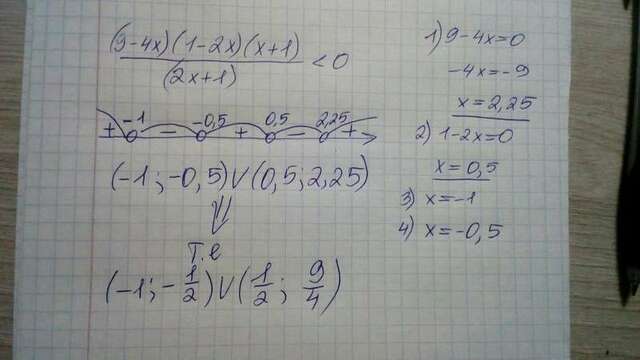 (9-4x)(1-2x)(x+1)
(2x+1)
<0
-1 -0,5 0,5 2,25
+ - + - +
(-1;-0,5)∪(0,5;2,25)
⇓
т.е
(-1;-1/2)∪(1/2; 9/4)
1) 9-4x=0
-4x=-9
x=2,25
2) 1-2x=0
x=0,5
3) x=-1
4) x=-0,5